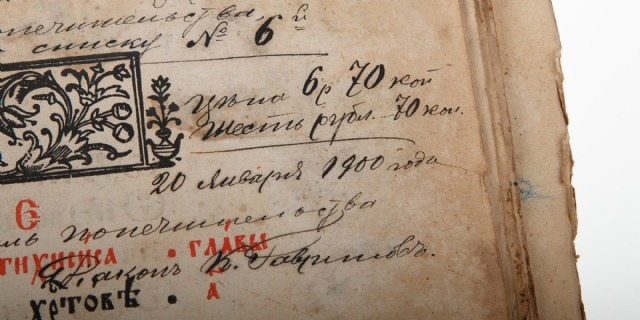 попечительства
списку № 6й
цѣна 6р 70 коп
Шесть рубл. 70 коп.
20 января 1900 года
попечительства
главы
Дьяконъ В. Гавриловъ.
хр҃товѣ • а